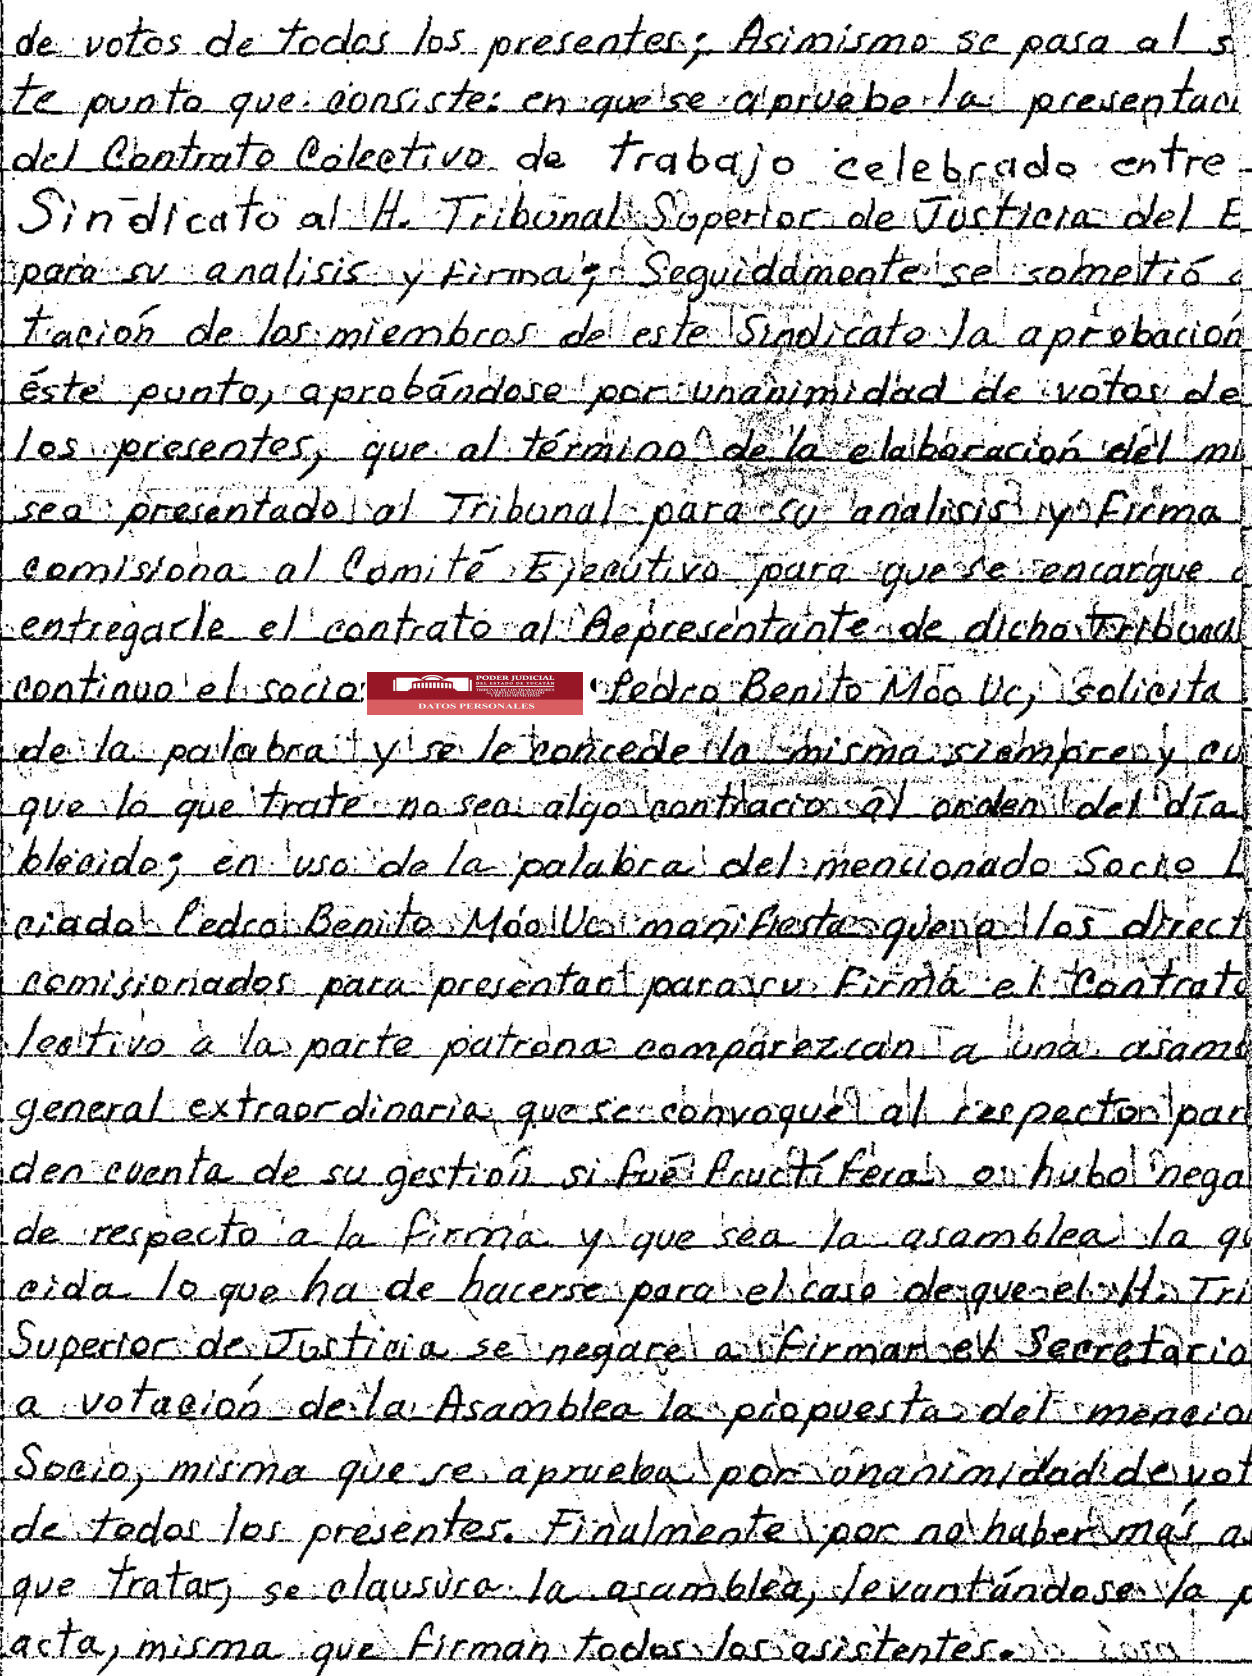 de votos de todos los presentes; Asimismo se pasa al s
te punto que consiste: en que se apruebe la presentaci
del Contrato Colectivo de trabajo celebrado entre
Sindicato al H. Tribunal Superior de Justicia del E
para su analisis y firma; Seguidamente se sometió a
tación de los miembros de este Sindicato la aprobación
éste punto, aprobándose por unanimidad de votos de
los presentes, que al término de la elaboración del mi
sea presentado al Tribunal para su analisis y firma
comisiona al Comité Ejecutivo para que se encargue d
entregarle el contrato al Representante de dicho Tribunal
continuo el socio Pedro Benito Móo Uc, solicita
PODER JUDICIAL
DEL ESTADO DE YUCATÁN
DATOS PERSONALES
de la palabra y se le concede la misma siempre y cu
que lo que trate no sea algo contrario al orden del día
blécido; en uso de la palabra del mencionado Socio L
ciado Pedro Benito Móo Uc manifiesta que a los direct
comisionados para presentar para su firma el Contrato
lectivo a la parte patrona comparezcan a una asamb
general extraordinaria que se convoque al respecto par
den cuenta de su gestión si fué fructífera o hubo nega
de respecto a la firma y que sea la asamblea la qu
cida lo que ha de hacerse para el caso de que el H. Tri
Superior de Justicia se negare a firmar el Secretario
a votación de la Asamblea la propuesta del mencio
Socio, misma que se aprueba por unanimidad de vot
de todos los presentes. Finalmente por no haber más as
que tratar, se clausura la asamblea, levantándose la p
acta, misma que firman todos los asistentes.